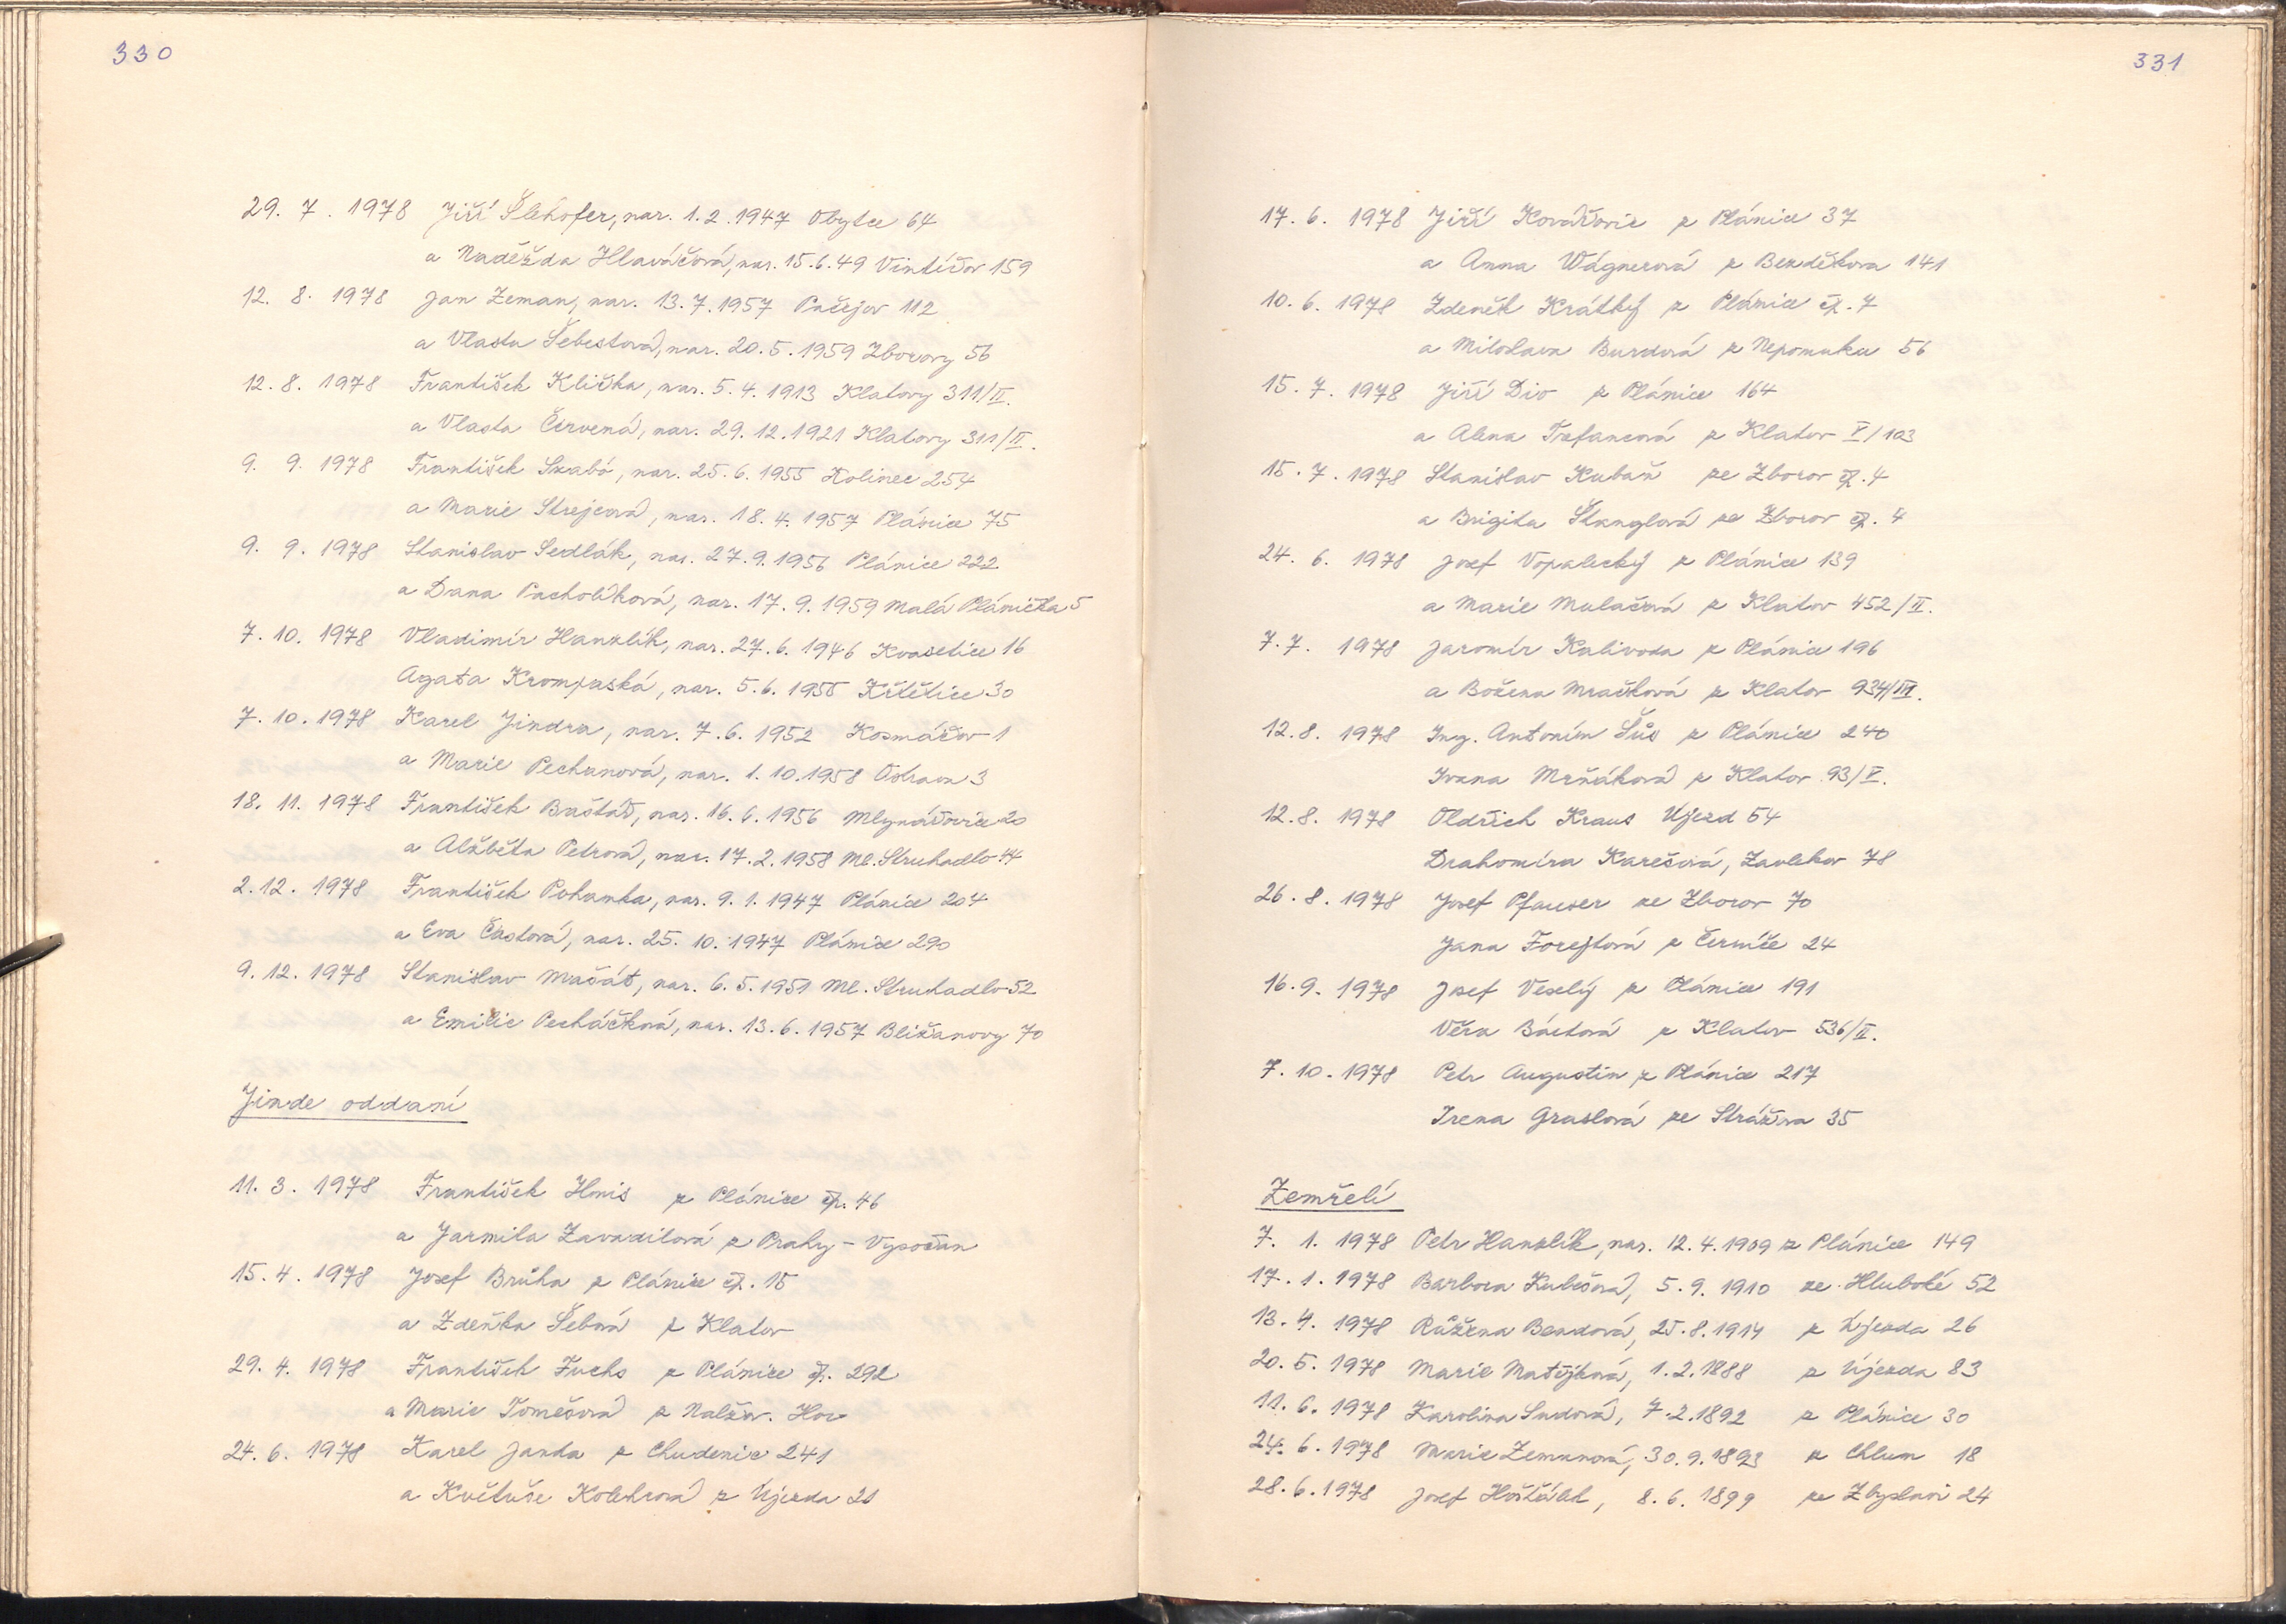 330
29. 7. 1978 Jiří Šlehofer, nar. 1.2.1947 Obytce 64
a Naděžda Hlaváčová, nar. 15.6.49 Vintířov 159
12. 8. 1978 Jan Zeman, nar. 13.7.1957 Pačejov 112
a Vlasta Šebestová, nar. 20.5.1959 Zborovy 56
12. 8. 1978 František Klička, nar. 5.4.1913 Klatovy 311/II.
a Vlasta Červená, nar. 29.12.1921 Klatovy 311/II.
9. 9. 1978 František Szabó, nar. 25.6.1955 Kolinec 254
a Marie Strejcová, nar. 18.4.1957 Plánice 75
9. 9. 1978 Stanislav Sedlák, nar. 27.9.1956 Plánice 222
a Dana Pacholíková, nar. 17.9.1959 Malá Plánička 5
7. 10. 1978 Vladimír Hanzlík, nar. 27.6.1946 Kvasetice 16
Agata Krompaská, nar. 5.6.1955 Křištice 30
7. 10. 1978 Karel Jindra, nar. 7.6.1952 Kosmáčov 1
a Marie Pechanová, nar. 1.10.1958 Ostrava 3
18. 11. 1978 František Baštář, nar. 16.6.1956 Mlynářovice 20
a Alžběta Petrová, nar. 17.2.1958 Ml. Struhadlo 44
2. 12. 1978 František Pohanka, nar. 9.1.1947 Plánice 204
a Eva Částová, nar. 25.10.1947 Plánice 290
9. 12. 1978 Stanislav Mašát, nar. 6.5.1951 Ml. Struhadlo 52
a Emilie Pecháčková, nar. 13.6.1957 Bližanovy 70
Jinde oddaní
11. 3. 1978 František Hnis z Plánice čp. 46
a Jarmila Zavadilová z Prahy - Vysočan
15. 4. 1978 Josef Brůha z Plánice čp. 15
a Zdeňka Šebová z Klatov
29. 4. 1978 František Fuchs z Plánice čp. 292
a Marie Tomešová z Nalžov. Hor
24. 6. 1978 Karel Janda z Chudenic 241
a Květuše Kolehrová z Újezda 21
331
17. 6. 1978 Jiří Kovářovic z Plánice 37
a Anna Wágnerová z Bezděkova 141
10. 6. 1978 Zdeněk Krátký z Plánice čp. 7
a Miloslava Burdová z Nepomuku 56
15. 7. 1978 Jiří Dio z Plánice 164
a Alena Trefancová z Klatov V/103
15. 7. 1978 Stanislav Kubaň ze Zborov čp. 4
a Brigita Štanglová ze Zborov čp. 4
24. 6. 1978 Josef Vopalecký z Plánice 139
a Marie Mulačová z Klatov 452/II.
7. 7. 1978 Jaromír Kalivoda z Plánice 196
a Božena Mračková z Klatov 934/III.
12. 8. 1978 Ing. Antonín Šůs z Plánice 240
Ivana Mrňáková z Klatov 93/V.
12. 8. 1978 Oldřich Kraus Újezd 54
Drahomíra Karešová, Zavlekov 78
26. 8. 1978 Josef Pfauser ze Zborov 70
Jana Forejtová z Černíče 24
16. 9. 1978 Josef Veselý z Plánice 191
Věra Bártová z Klatov 536/II.
7. 10. 1978 Petr Augustin z Plánice 217
Irena Graslová ze Strážova 35
Zemřelí
7. 1. 1978 Petr Hanzlík, nar. 12.4.1909 z Plánice 149
17. 1. 1978 Barbora Kubešová, 5.9.1910 ze Hluboké 52
13. 4. 1978 Růžena Bendová, 25.8.1914 z Újezda 26
20. 5. 1978 Marie Matějková, 1.2.1888 z Újezda 83
11. 6. 1978 Karolina Sudová, 7.2.1892 z Plánice 30
24. 6. 1978 Marie Zemanová, 30.9.1893 z Chlum 18
28. 6. 1978 Josef Hošťálek, 8.6.1899 ze Zbyslavi 24